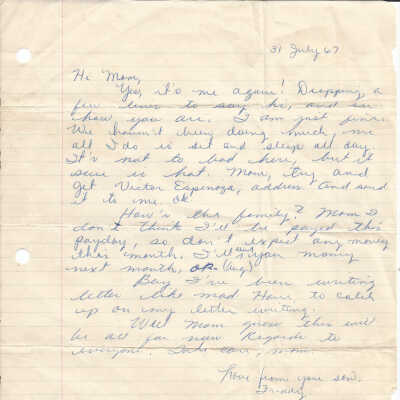 31 July 67
Hi Mom,
Yes, it's me again! Dropping a
few lines to say hi, and see
how you are. I am just fine.
We haven't being doing much, me
all I do is set and sleep all day.
It's not to bad here, but it
sure is hot. Mom, try and
get Victor Espinoza, address and send
it to me. ok
How's the family? Mom I
don't think I'll be payed this
payday, so don't expect any money
this month. I'll send you money
next month, ok. (Aug)
Boy I've been writing
letter like mad. Have to catch
up on my letter writing.
Well Mom guess this will
be all for now. Regards to
everyone. Take care, mom.
Love from your son,